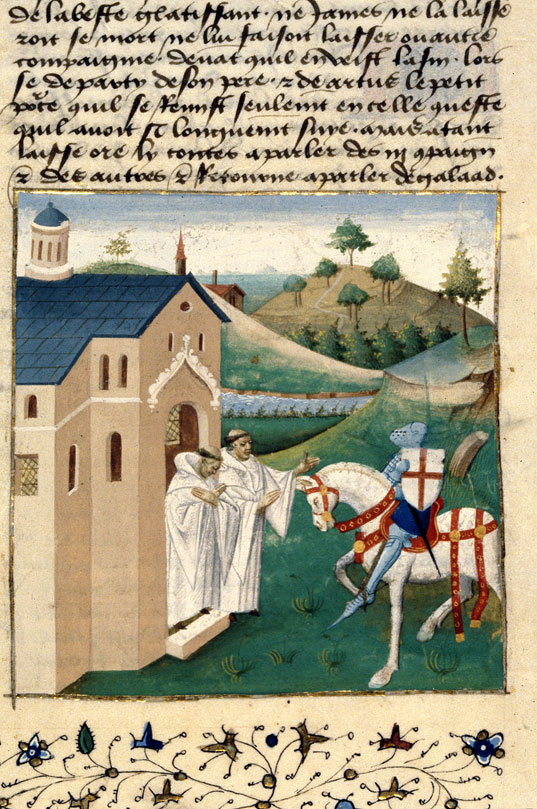 de la beste glatissant · ne James ne la laisse
roit se mort ne lui faisoit laisser ou autre
compaignie · deuāt quil en veist la fin · lors
se departy de son pere · ⁊ de artus le petit
pource quil se remist seulemt en celle queste
quil auoit si longuemt siuie · a mais atant
laisse ore ly contes a parler des iij 9paigns
⁊ des autres ⁊ Retourne a parler de galaad ·